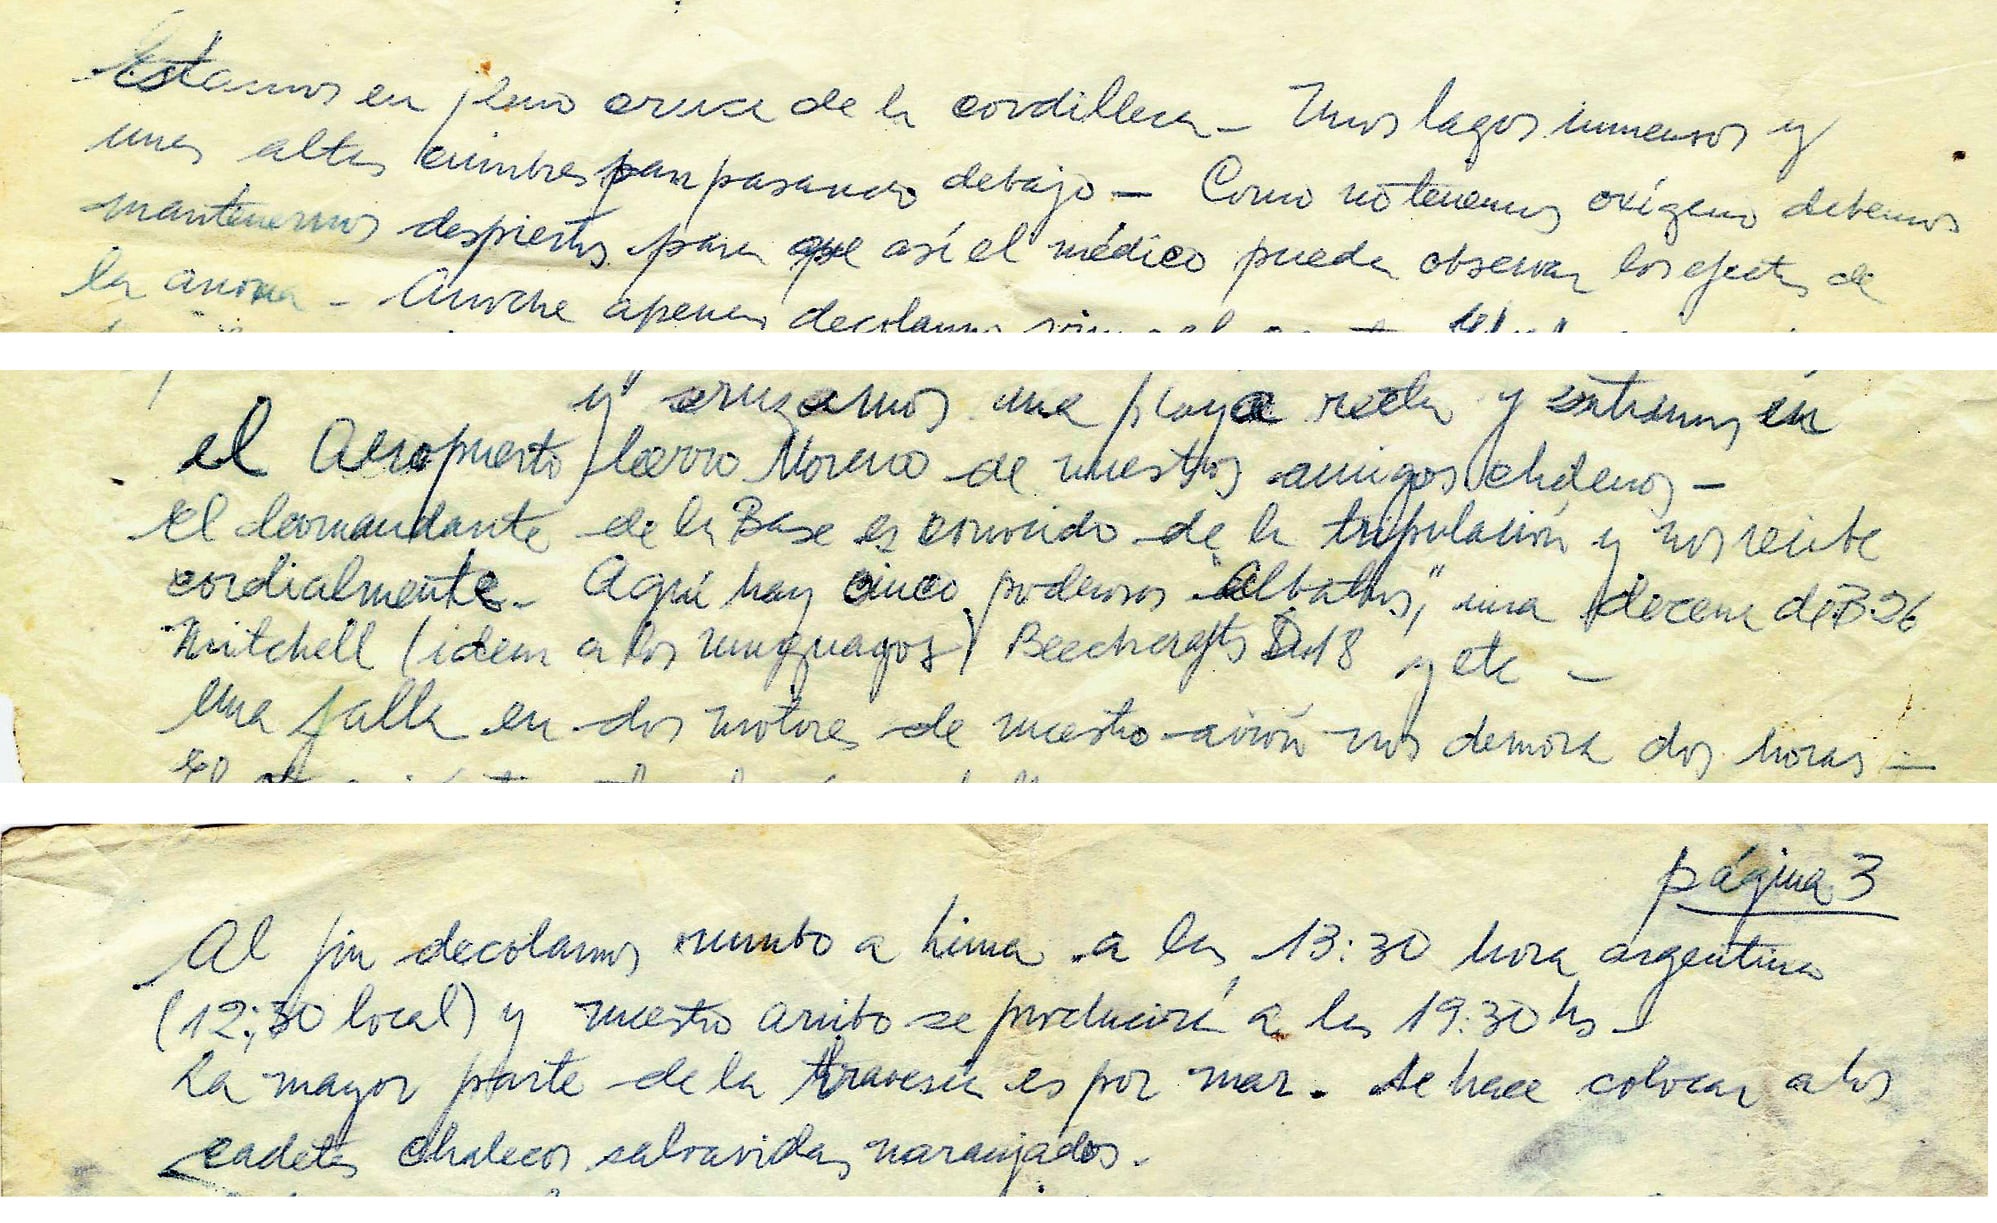 Estamos en pleno cruce de la cordillera - Unos lagos inmensos y
unas altas cumbres van pasando debajo - Como no tenemos oxígeno debemos
mantenernos despiertos para que así el médico pueda observar los efectos de
la anoxia - Anoche apenas decolamos
y cruzamos una playa recta y entramos en
el Aeropuerto Cerro Moreno de nuestros amigos chilenos -
El Comandante de la Base es conocido de la tripulación y nos recibe
cordialmente - Aquí hay cinco poderosos "Albatros," una decena de B-26
Mitchell (idem a los uruguayos) Beechcrafts D-18 y etc -
Una falla en dos motores de nuestro avión nos demora dos horas -
página 3
Al fin decolamos rumbo a Lima a las 13:30 hora argentina
(12:30 local) y nuestro arribo se producirá a las 19:30 hs -
La mayor parte de la travesía es por mar. Se hace colocar a los
cadetes chalecos salvavidas naranjados.